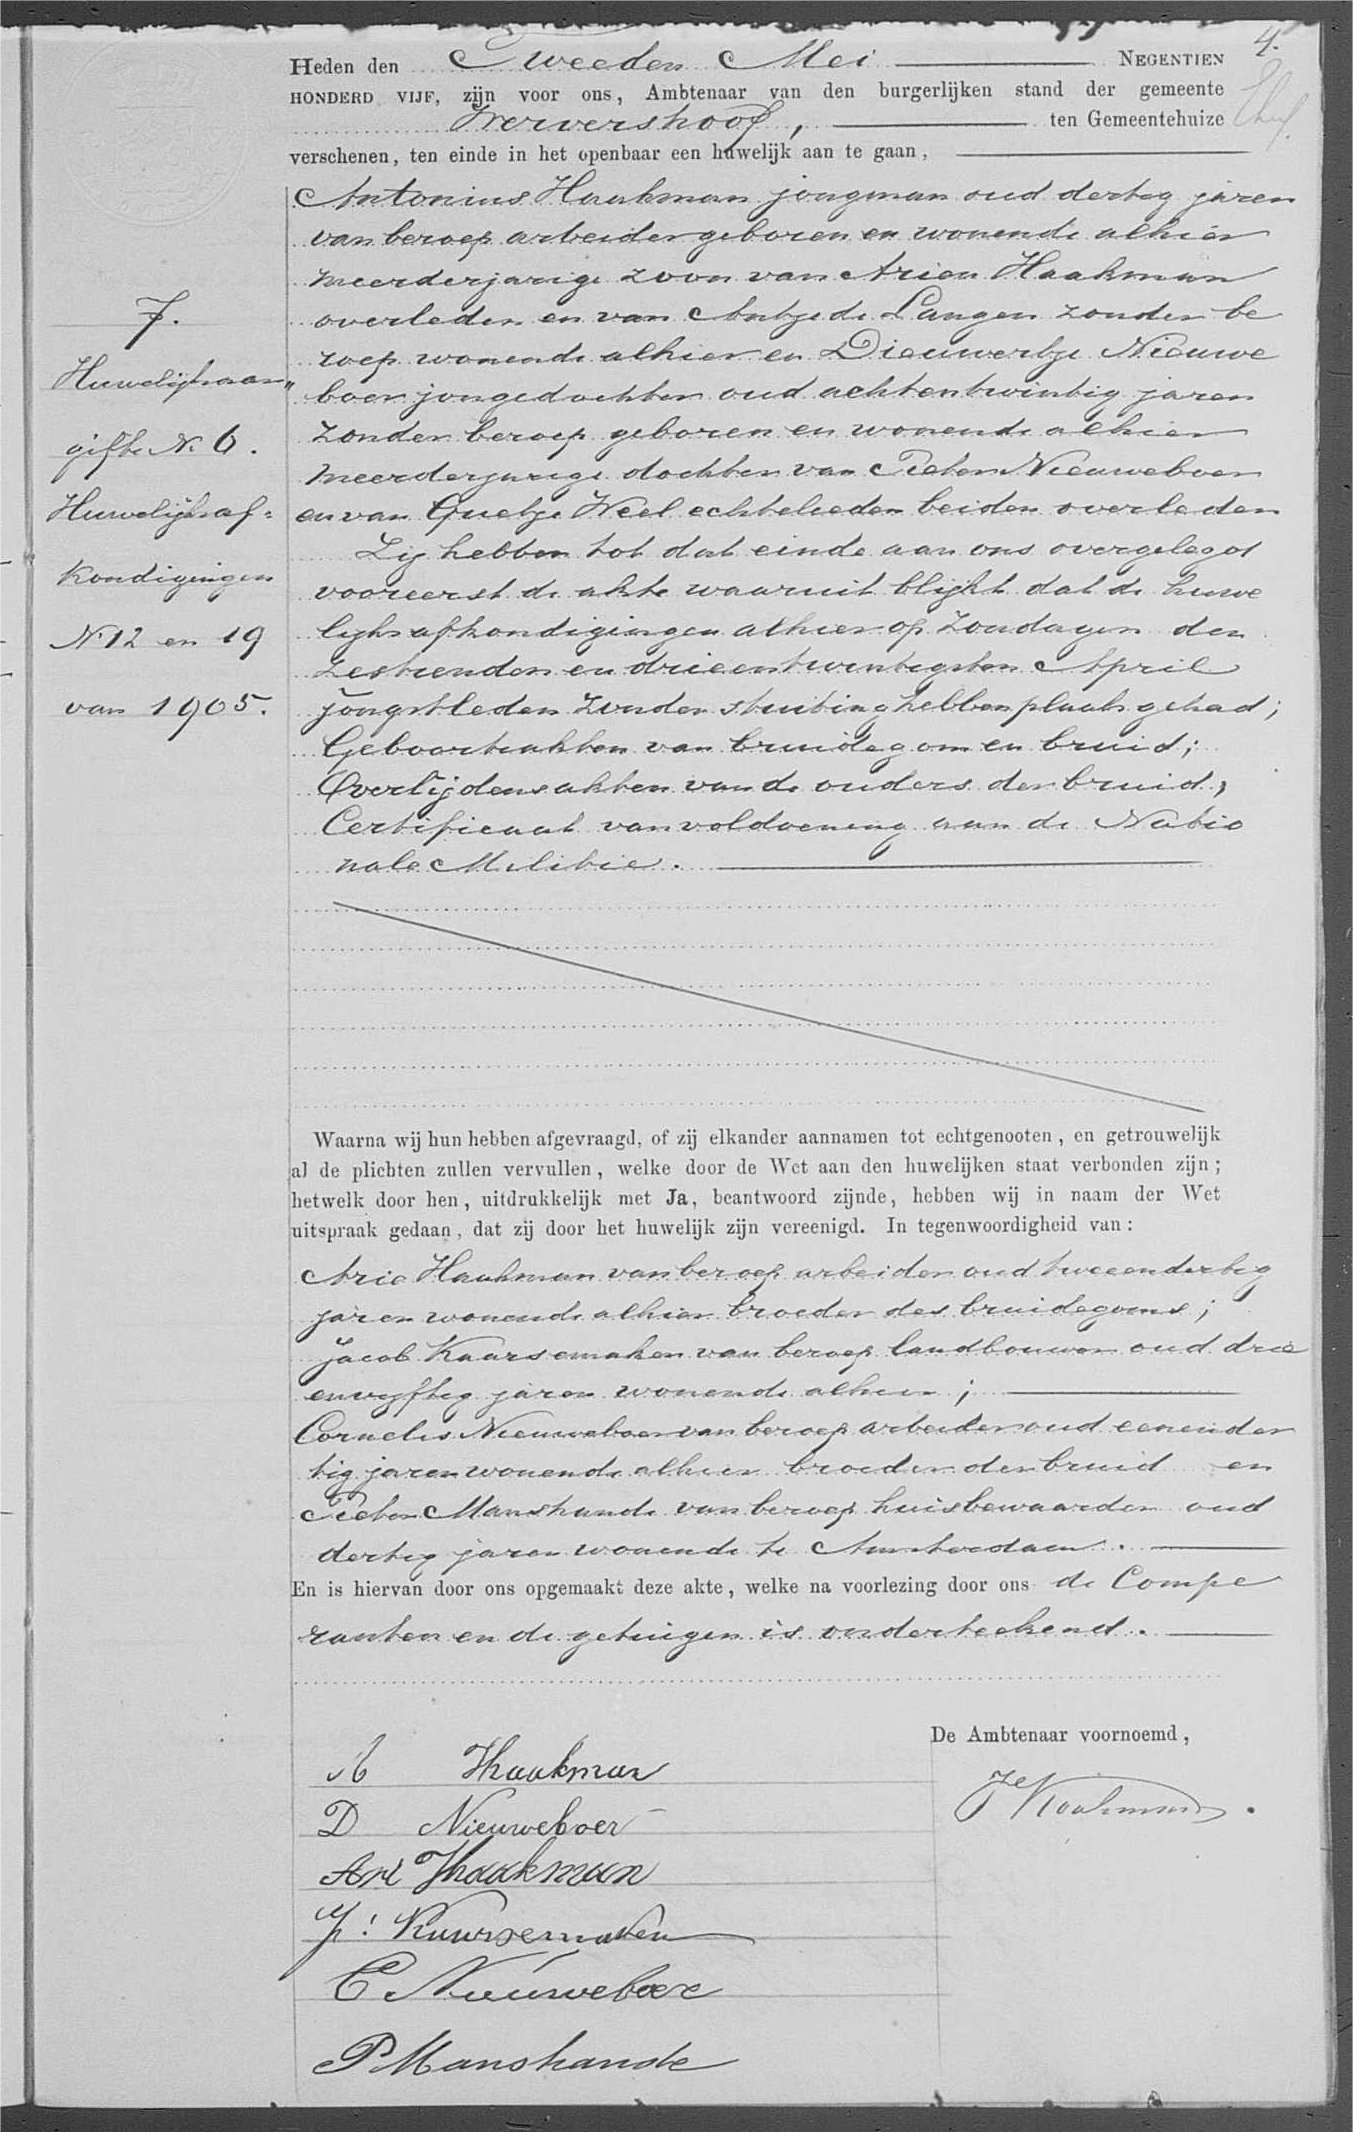 4.
Heden den Tweeden Mei NEGENTIEN
HONDERD VIJF, zijn voor ons, Ambtenaar van den burgerlijken stand der gemeente
Wervershoof, ten Gemeentehuize
verschenen, ten einde in het openbaar een huwelijk aan te gaan,
Antonius Haakman jongman oud dertig jaren
van beroep arbeider geboren en wonende alhier
meerderjarige zoon van Arien Haakman
overleden en van Antje de Langen zonder be
roep wonende alhier en Dieuwertje Nieuwe
boer jongedochter oud achtentwintig jaren
zonder beroep geboren en wonende alhier
meerderjarige dochter van Pieter Nieuweboer
en van Guetje Weel echtelieden beiden overleden
Zij hebben tot dat einde aan ons overgelegd
vooreerst de akte waaruit blijkt dat de huwe
lijksafkondigingen alhier op Zondagen den
zestienden en drieentwintigsten April
jongstleden zonder stuiting hebben plaats gehad;
Geboorteakten van bruidegom en bruid;
Overlijdensakten van de ouders der bruid,
Certificaat van voldoening aan de Natio
nale Militie.
7.
Huwelijksaan„
gifte N. 6.
Huwelijksaf=
kondigingen
N. 12 en 19
van 1905.
Waarna wij hun hebben afgevraagd, of zij elkander aannamen tot echtgenooten, en getrouwelijk
al de plichten zullen vervullen, welke door de Wet aan den huwelijken staat verbonden zijn;
hetwelk door hen, uitdrukkelijk met Ja, beantwoord zijnde, hebben wij in naam der Wet
uitspraak gedaan, dat zij door het huwelijk zijn vereenigd. In tegenwoordigheid van:
Arie Haakman van beroep arbeider oud tweeendertig
jaren wonende alhier broeder des bruidegoms;
Jacob Kaarsemaker van beroep landbouwer oud drie
envyftig jaren wonende alhier;
Cornelis Nieuweboer van beroep arbeider oud eenender
tig jaren wonende alhier broeder der bruid en
Pieter Manshande van beroep huisbewaarder oud
dertig jaren wonende te Amsterdam.
En is hiervan door ons opgemaakt deze akte, welke na voorlezing door ons de Compa
ranten en de getuigen is onderteekend.
De Ambtenaar voornoemd,
A Haakman
D Nieuweboer
Ari Haakman
J: Kaarsemaker
C Nieuweboer
P Manshande